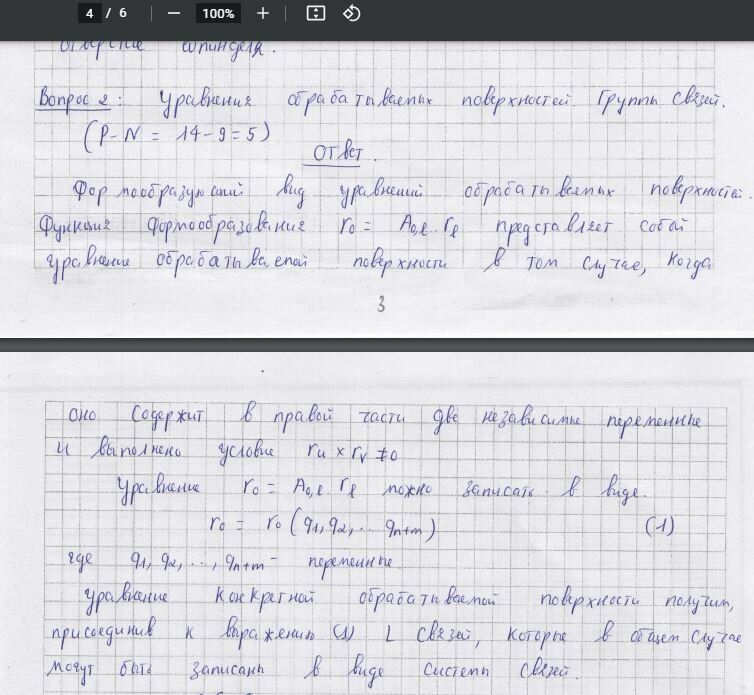 4 / 6 — 100% +
отверстие шпинделя.
Вопрос 2: Уравнения обрабатываемых поверхностей. Группы связей.
(P-N = 14-9=5)
Ответ.
Формообразующий вид уравнений обрабатываемых поверхностей.
Функция формообразования r₀ = A₀,ℓ · rℓ представляет собой
уравнение обрабатываемой поверхности в том случае, когда
3
оно содержит в правой части две независимые переменные
и выполнено условие ru × rv ≠ 0
Уравнение r₀ = A₀,ℓ · rℓ можно записать в виде.
r₀ = r₀ (q₁, q₂, ... qn+m) (1)
где q₁, q₂, ..., qn+m - переменные.
Уравнение конкретной обрабатываемой поверхности получим,
присоединив к выражению (1) L связей, которые в общем случае
могут быть записаны в виде системы связей.